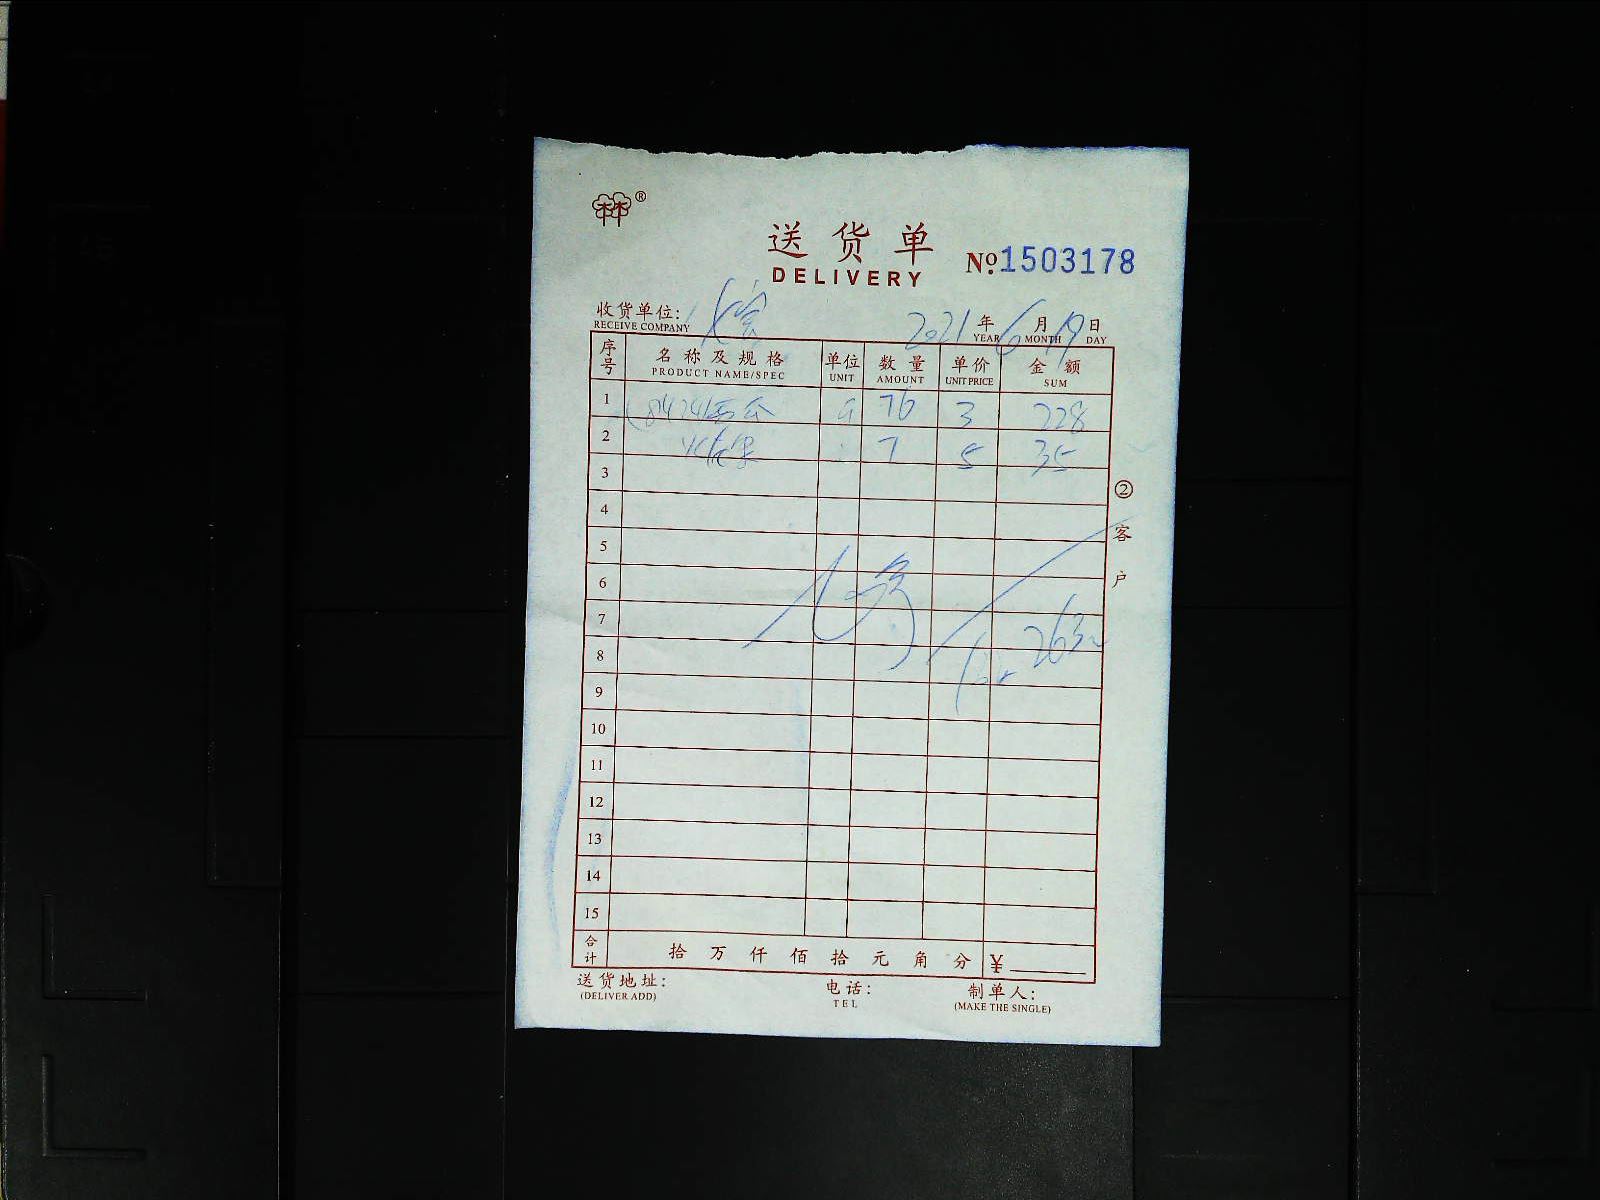 ®
送货单
DELIVERY
No 1503178
收货单位:
RECEIVE COMPANY
2021 年 6 月 19 日
YEAR MONTH DAY
序号 名称及规格 单位 数量 单价 金额
PRODUCT NAME/SPEC UNIT AMOUNT UNIT PRICE SUM
1 76 3 228
2 7 5 35
3
4
5
6
7
263
8
9
10
11
12
13
14
15
合计 拾 万 仟 佰 拾 元 角 分 ¥
② 客户
送货地址: 电话: 制单人:
(DELIVER ADD) TEL (MAKE THE SINGLE)